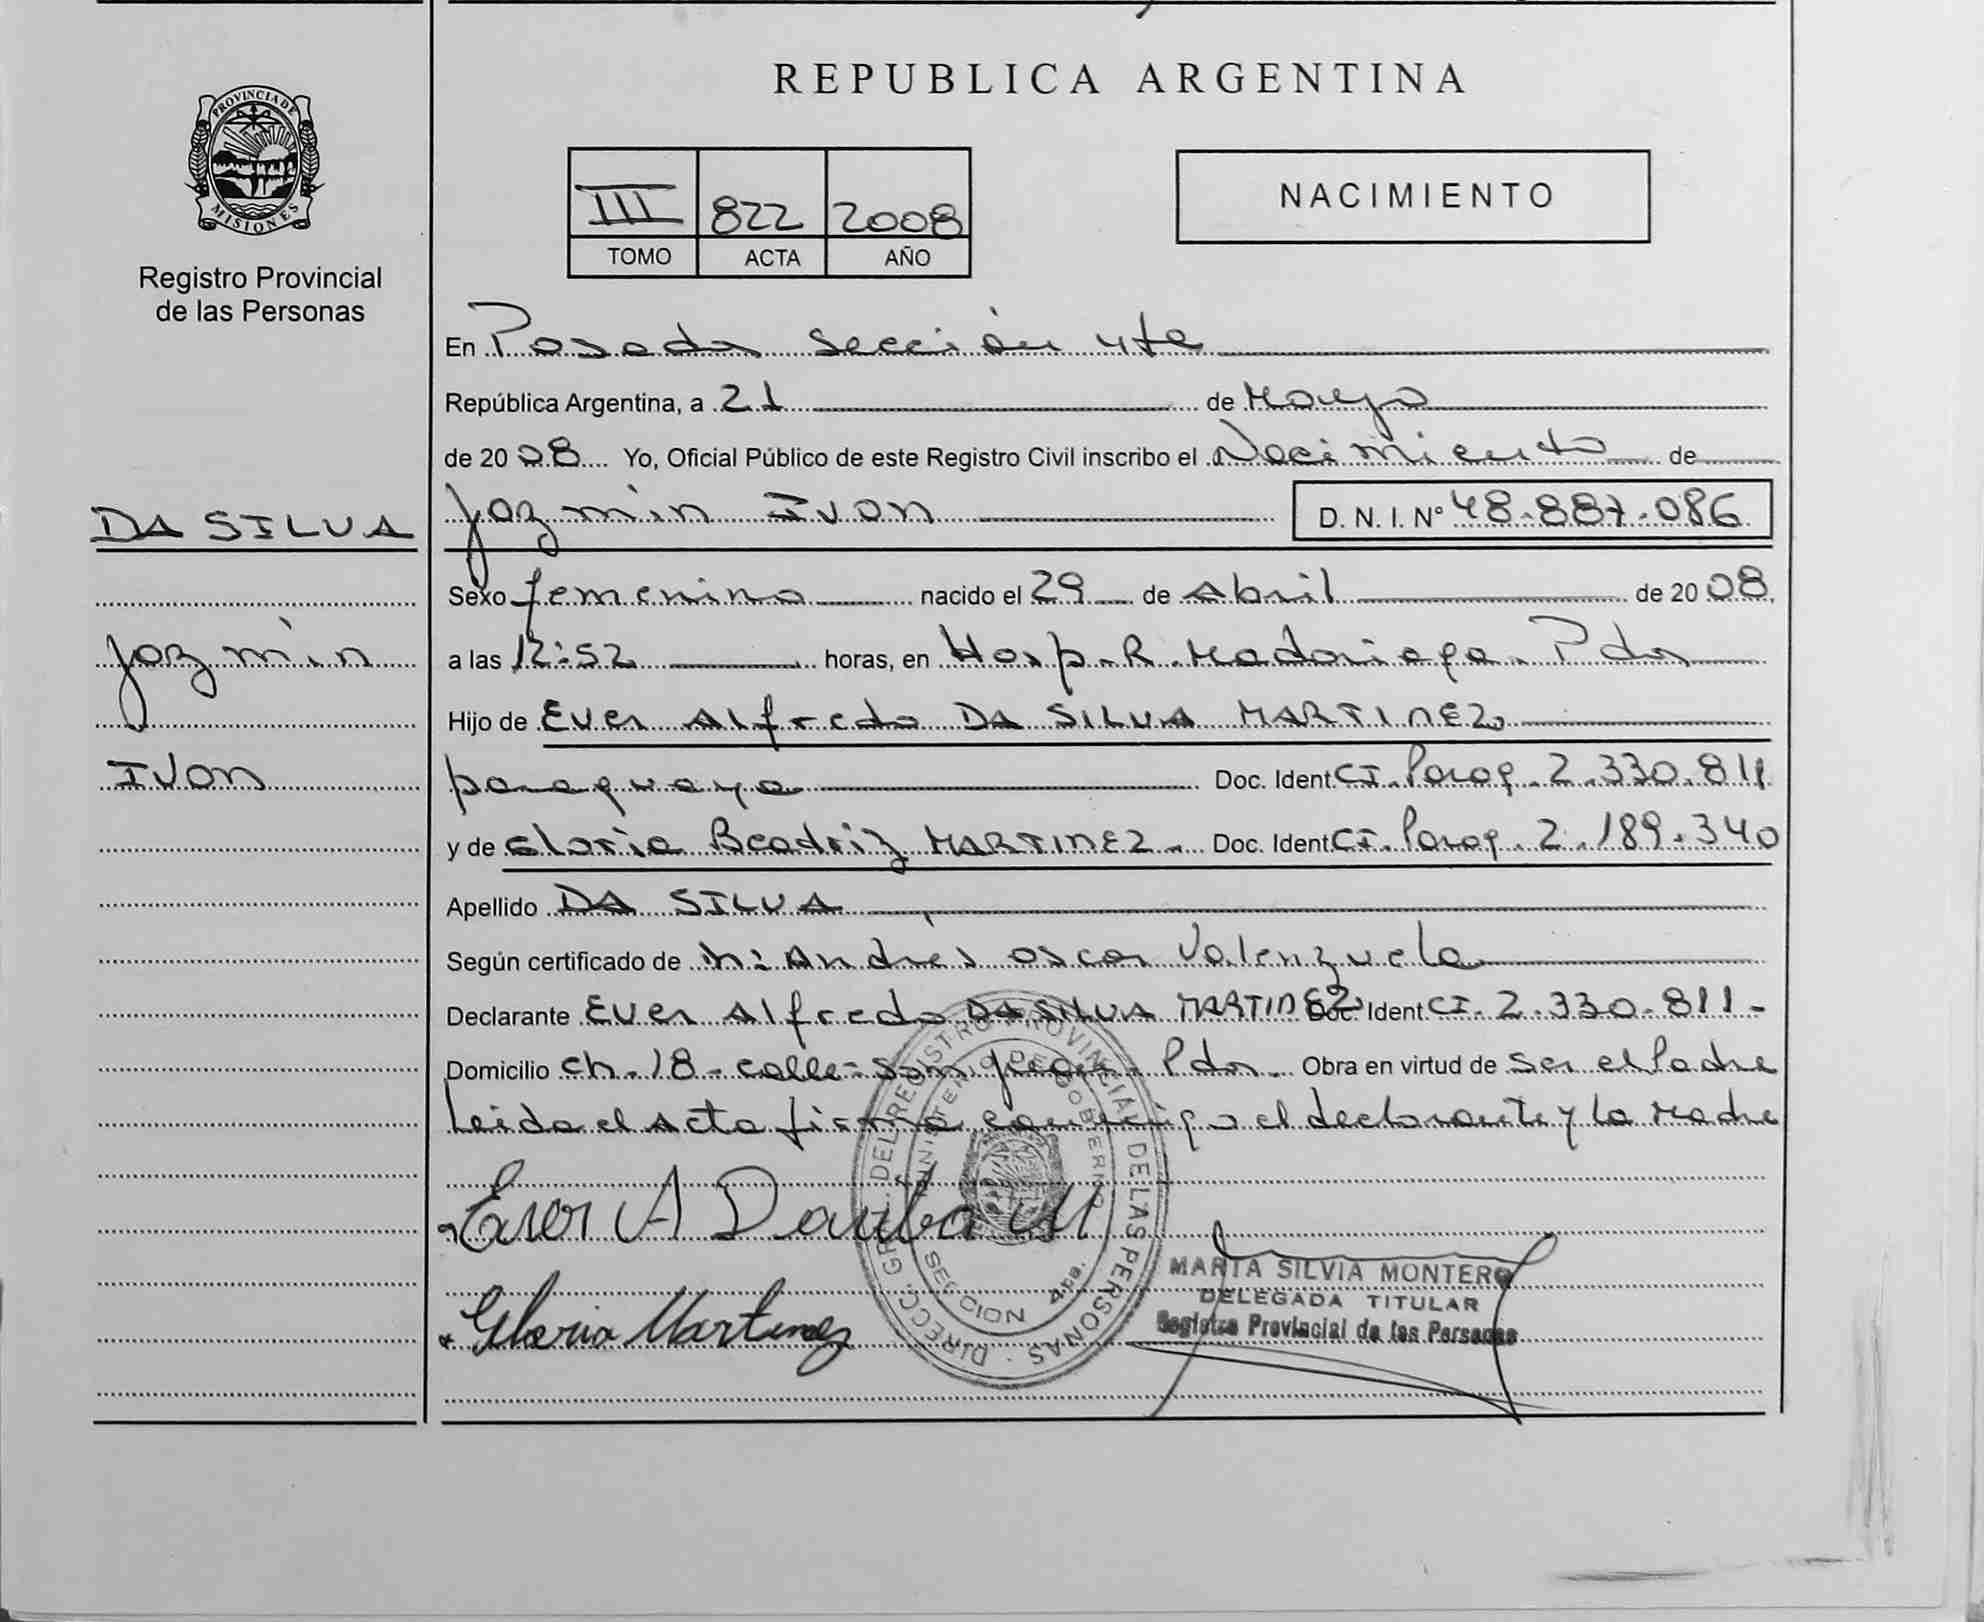 REPUBLICA ARGENTINA
PROVINCIA DE
MISIONES
Registro Provincial
de las Personas
III 822 2008
TOMO ACTA AÑO
NACIMIENTO
En Posadas sección 4ta
República Argentina, a 21 de Mayo
de 2008 Yo, Oficial Público de este Registro Civil inscribo el Nacimiento de
DA SILVA
Jazmín
Ivon
Jazmin Ivon D. N. I. Nº 48.887.086
Sexo femenino nacido el 29 de Abril de 2008
a las 12:52 horas, en Hosp. R. Madariaga. Pdas
Hijo de Ever Alfredo DA SILVA MARTINEZ
paraguaya Doc. Ident. CI. Parag. 2.330.811
y de Gloria Beatriz MARTINEZ. Doc. Ident CI. Parag. 2.189.340
Apellido DA SILVA
Según certificado de Andrés Oscar Valenzuela
Declarante Ever Alfredo DA SILVA MARTINEZ Doc. Ident CI. 2.330.811-
Domicilio Ch. 18 - calle Pdas. Obra en virtud de ser el Padre
Leida el Acta firma conmigo el declarante y la Madre
Ever A Da
Gloria Martinez
DIRECC. GRAL. DEL REGISTRO PROVINCIAL DE LAS PERSONAS
MINISTERIO DE GOBIERNO
SECCION 4ta.
MARTA SILVIA MONTERO
DELEGADA TITULAR
Registro Provincial de las Personas